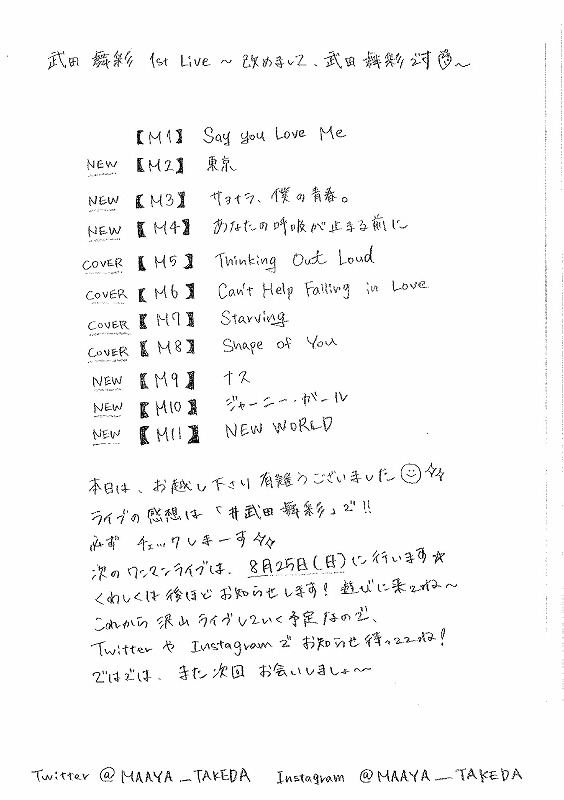 武田 舞彩 1st Live ~ 改めまして、武田 舞彩です ~
【M1】 Say you Love Me
NEW 【M2】 東京
NEW 【M3】 サヨナラ、僕の青春。
NEW 【M4】 あなたの呼吸が止まる前に
COVER 【M5】 Thinking Out Loud
COVER 【M6】 Can't Help Falling in Love
COVER 【M7】 Starving
COVER 【M8】 Shape of You
NEW 【M9】 ナス
NEW 【M10】 ジャーニー・ガール
NEW 【M11】 NEW WORLD
本日は、お越し下さり有難うございました☺
ライブの感想は「#武田 舞彩」で!!
必ず チェックしまーす
次のワンマンライブは、8月25日(日)に行います☆
くわしくは後ほどお知らせします! 遊びに来てね~
これから沢山ライブしていく予定なので、
Twitter や Instagram で お知らせ待っててね!
ではでは、また次回 お会いしましょ~
Twitter @MAAYA_TAKEDA Instagram @MAAYA_TAKEDA